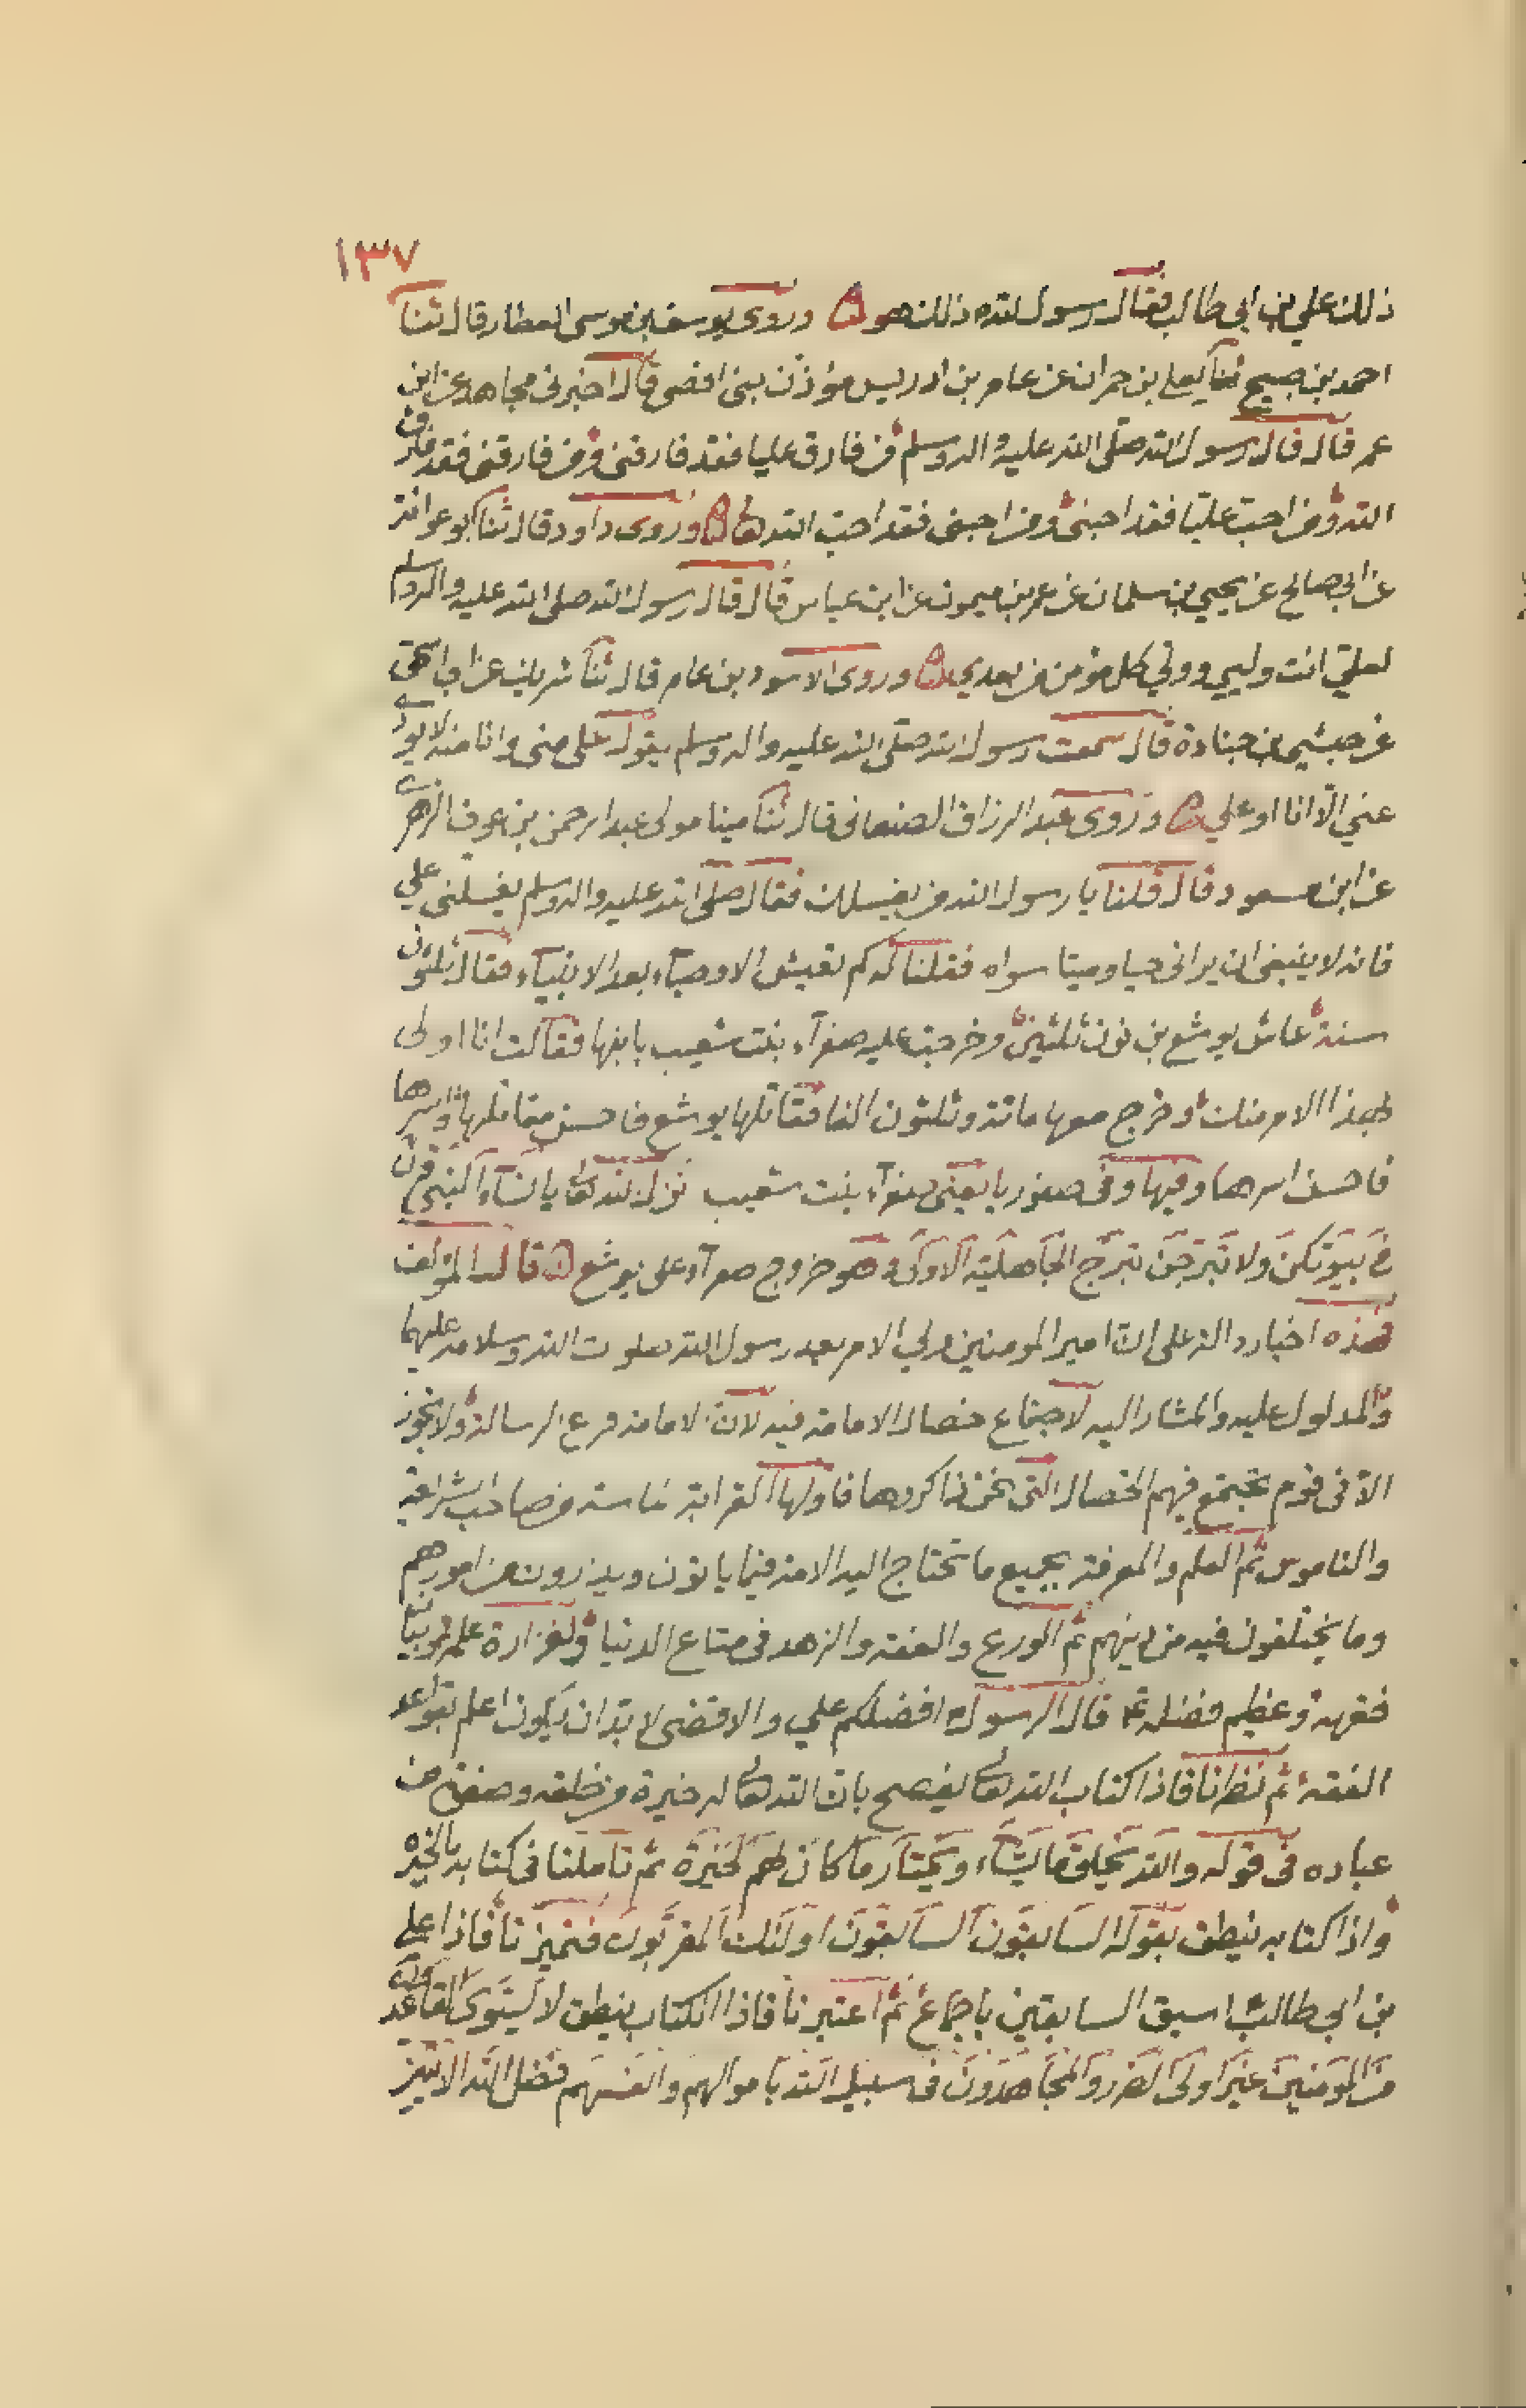 ١٣٧
ذلك علي بن ابي طالب فقال رسول الله ذلك هو وروى يوسف بن موسى العطار قال ثنا
احمد بن صبيح ثنا يعلى بن حمران عن عامر بن ادريس مؤذن بني اقصى قال اخبرني مجاهد عن ابن
عمر قال قال رسول الله صلى الله عليه واله وسلم من فارق عليا فقد فارقني ومن فارقني فقد فارق
الله ومن احب عليّا فقد احبني ومن احبني فقد احب الله تعالى وروى داود قال ثنا ابو عوانة
عن ابي صالح عن يحيي بن سلمان عن عمر بن ميمون عن ابن عباس قال قال رسول الله صلى الله عليه واله وسلم
لعليّ انت وليي وولي كل مؤمن من بعدي وروى الاسود بن عامر قال ثنا شريك عن ابي اسحق
عن حبشي بن جنادة قال سمعت رسول الله صلى الله عليه واله وسلم يقول علي مني وانا منه لا يودي
عني الّا انا او علي وروى عبد الرزاق الصنعاني قال ثنا مينا مولى عبد الرحمن بن عوف الزهري
عن ابن مسعود قال قلنا يا رسول الله من يغسلك فقال صلى الله عليه واله وسلم يغسلني علي
فانه لا ينبغي ان يراني حيا وميتا سواه فقلنا له كم تعيش الاوصيآء بعد الانبيآء فقال ثلثون
سنة عاش يوشع بن نون ثلثين وخرجت عليه صفرآء بنت شعيب بابنها فقالت انا اولى
بهذا الامر منك وخرج معها مائة وثلثون الفا فقاتلها يوشع فاحسن مقاتلها واسرها
فاحسن اسرها وفيها وفي صفوريا يعني صفرآء بنت شعيب نزل الله تعالى يا نسآء النبي وقرن
في بيوتكن ولا تبرجن تبرج الجاهلية الاولى وهو خروج صفرآء على يوشع قال المؤلف
فهذه اخبار دالة على انّ امير المومنين ولي الامر بعد رسول الله صلوت الله وسلامه عليهما
والمدلول عليه والمشار اليه لاجتماع خصال الامامة فيه لانّ الامامة فرع الرسالة ولا تجوز
الا في قوم تجتمع فيهم الخصال التي نحن ذاكروها فاولها القرابة الماسة من صاحب الشريعة
والناموس ثم العلم والمعرفة بجميع ما تحتاج اليه الامة فيما ياتون ويذرون من امورهم
وما يختلفون فيه من دينهم ثم الورع والعفة والزهد في متاع الدنيا ولغزارة علمه
فقهه وعظيم فضله قال الرسول افضلكم علي والاقضى لا بد ان يكون اعلم بقواعد
الفقه ثم نظرنا فاذا كتاب الله تعالى يفصح بان الله تعالى له خيرة من خلقه وصفوة من
عباده في قوله والله يخلق ما يشآء ويختار ما كان لهم الخيرة ثم تاملنا في كتابه بالخيره
واذا كتابه ينطق بقوله السابقون السابقون اولئك المقربون فتميزنا فاذا علي
بن ابي طالب اسبق السابقين باجماع ثم اعتبرنا فاذا الكتاب ينطق لا يستوى القاعدون
من المومنين غير اولى الضرر والمجاهدون في سبيل الله باموالهم وانفسهم فضل الله